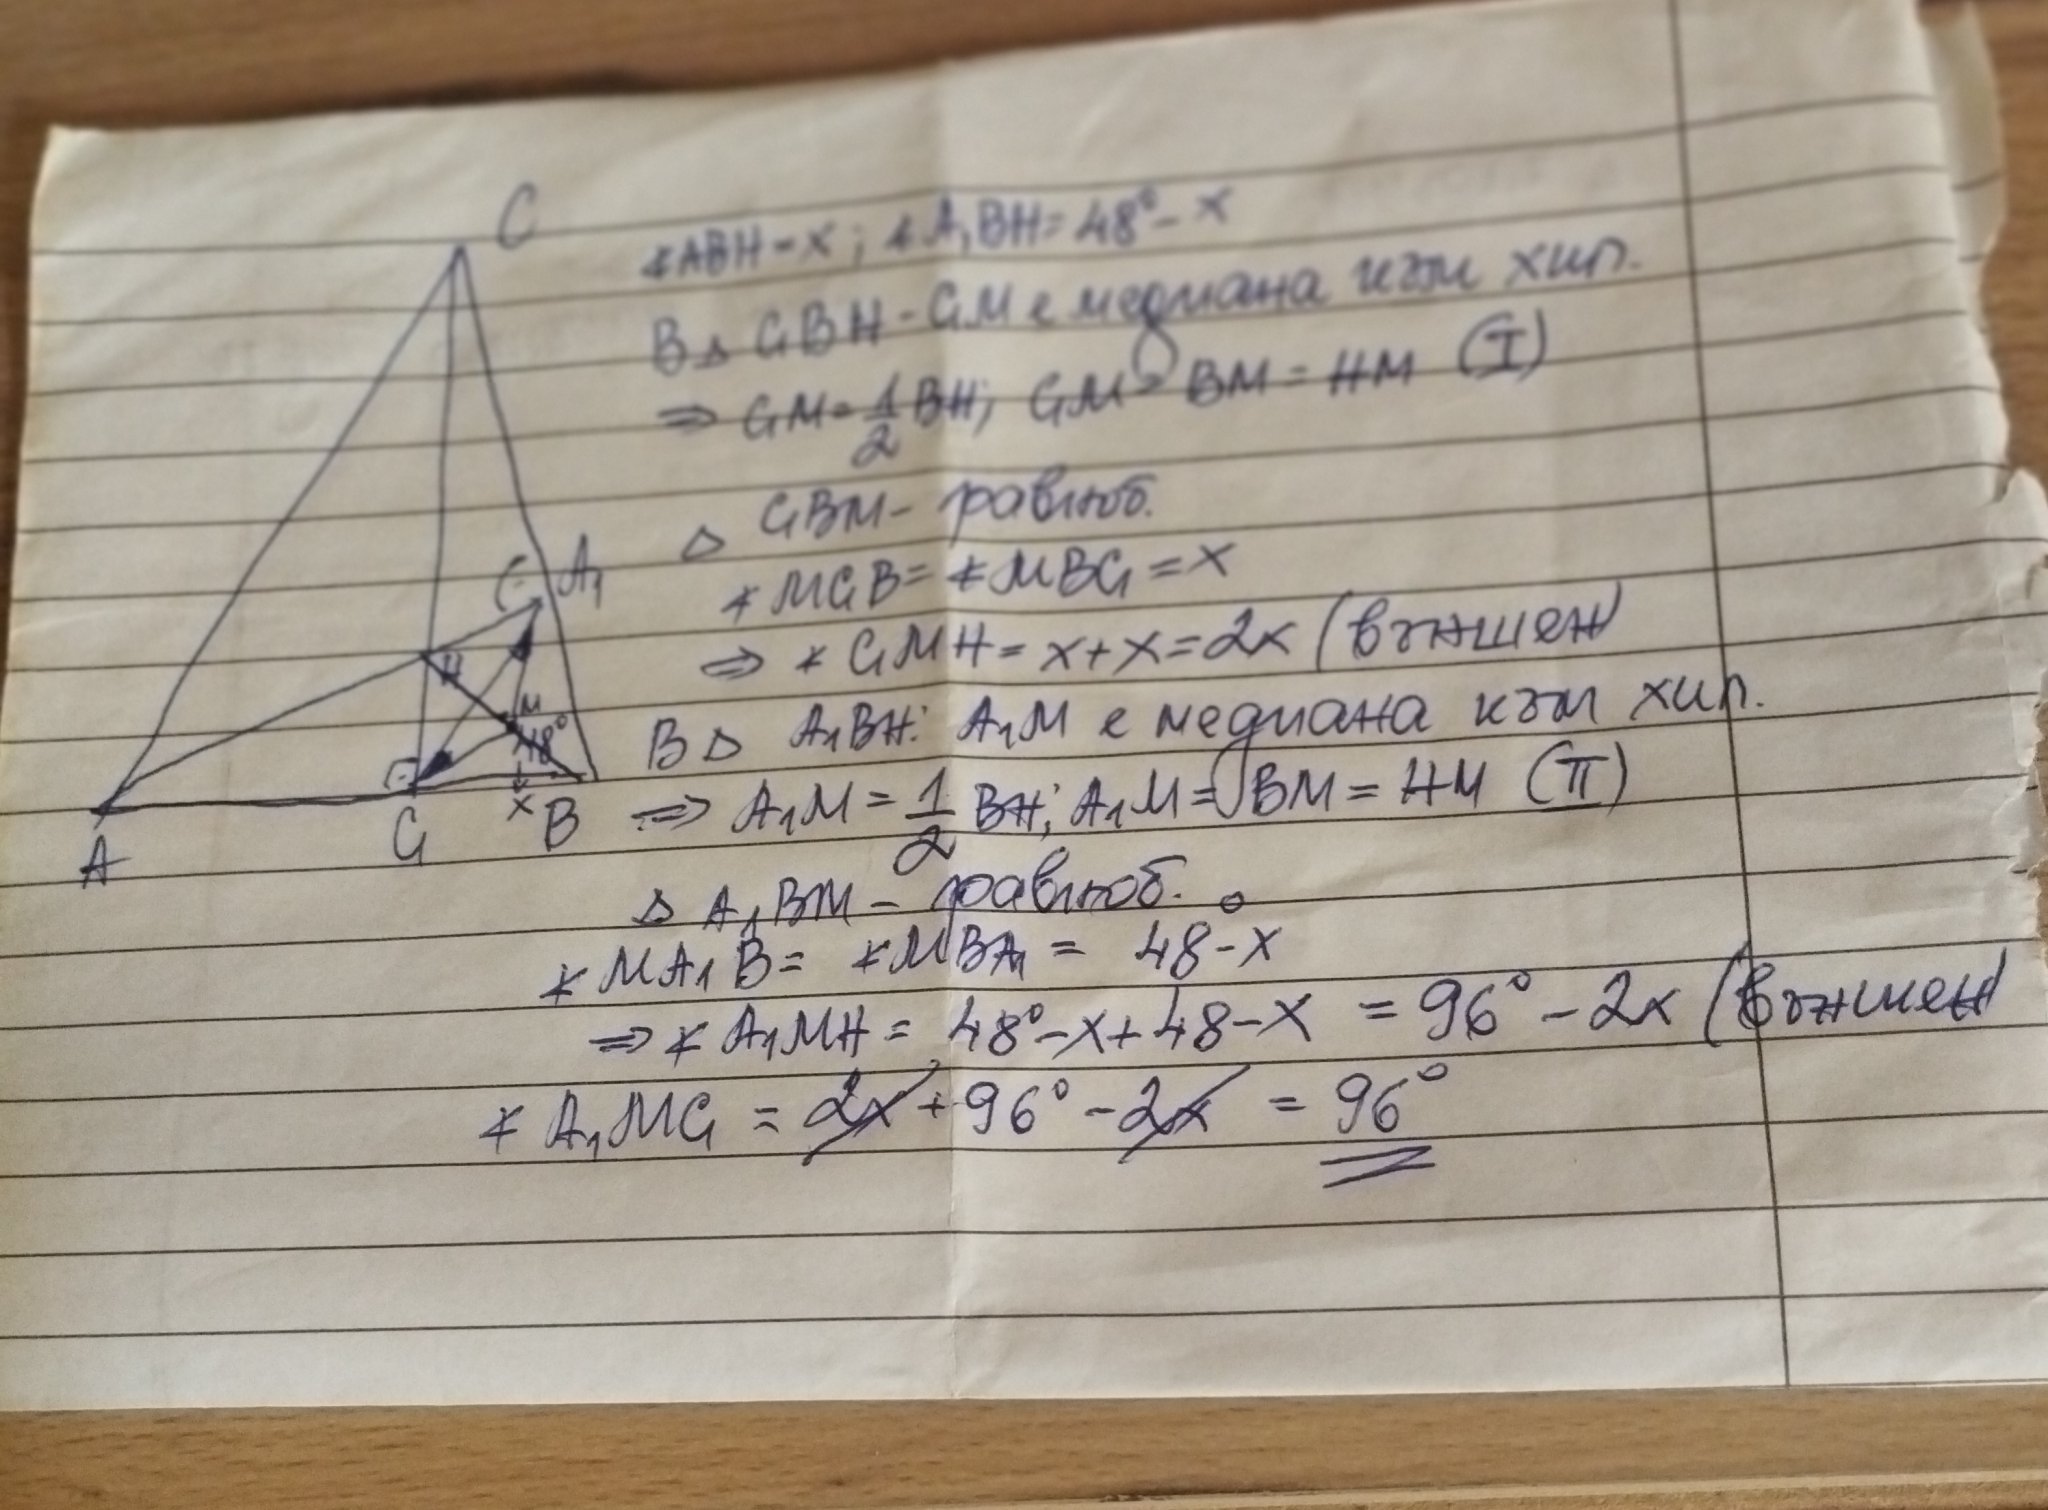 C
∢ABH = x; ∢A₁BH = 48° - x
В △ C₁BH - C₁M е медиана към хип.
⇒ C₁M = 1/2 BH; C₁M = BM = HM (I)
△ C₁BM - равноб.
∢MC₁B = ∢MBC₁ = x
⇒ ∢C₁MH = x+x = 2x (външен)
A₁
H
M
48°
x
A
C₁
B
В △ A₁BH: A₁M е медиана към хип.
⇒ A₁M = 1/2 BH; A₁M = BM = HM (II)
△ A₁BM - равноб.
∢MA₁B = ∢MBA₁ = 48° - x
⇒ ∢A₁MH = 48° - x + 48 - x = 96° - 2x (външен)
∢A₁MC₁ = 2x + 96° - 2x = 96°